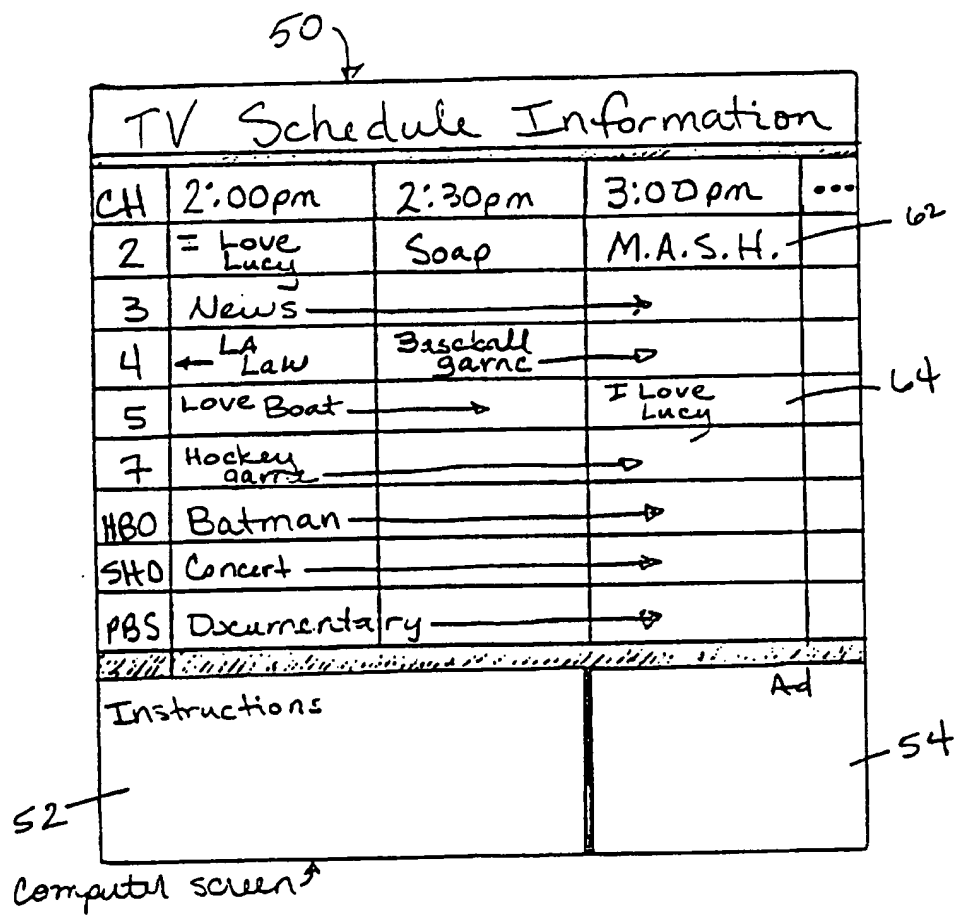 50
TV Schedule Information
CH 2:00pm 2:30pm 3:00pm ...
62
2 I Love Lucy Soap M.A.S.H.
3 News
4 LA Law Baseball game
64
5 Love Boat I Love Lucy
7 Hockey game
HBO Batman
SHO Concert
PBS Documentary
Instructions
Ad
54
52
Computer screen